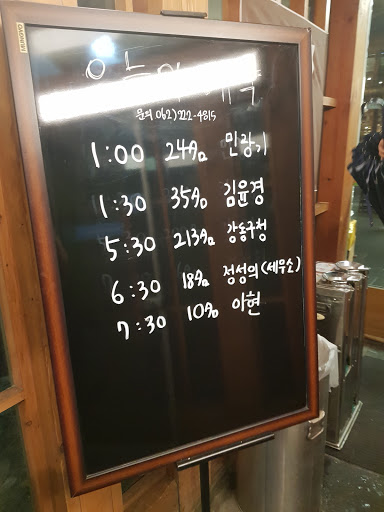 오늘의
문의 062) 222-4815
1:00 24名 민광기
1:30 35名 김윤경
5:30 213名 강동구청
6:30 18名 정성의(세무소)
7:30 10名 이현